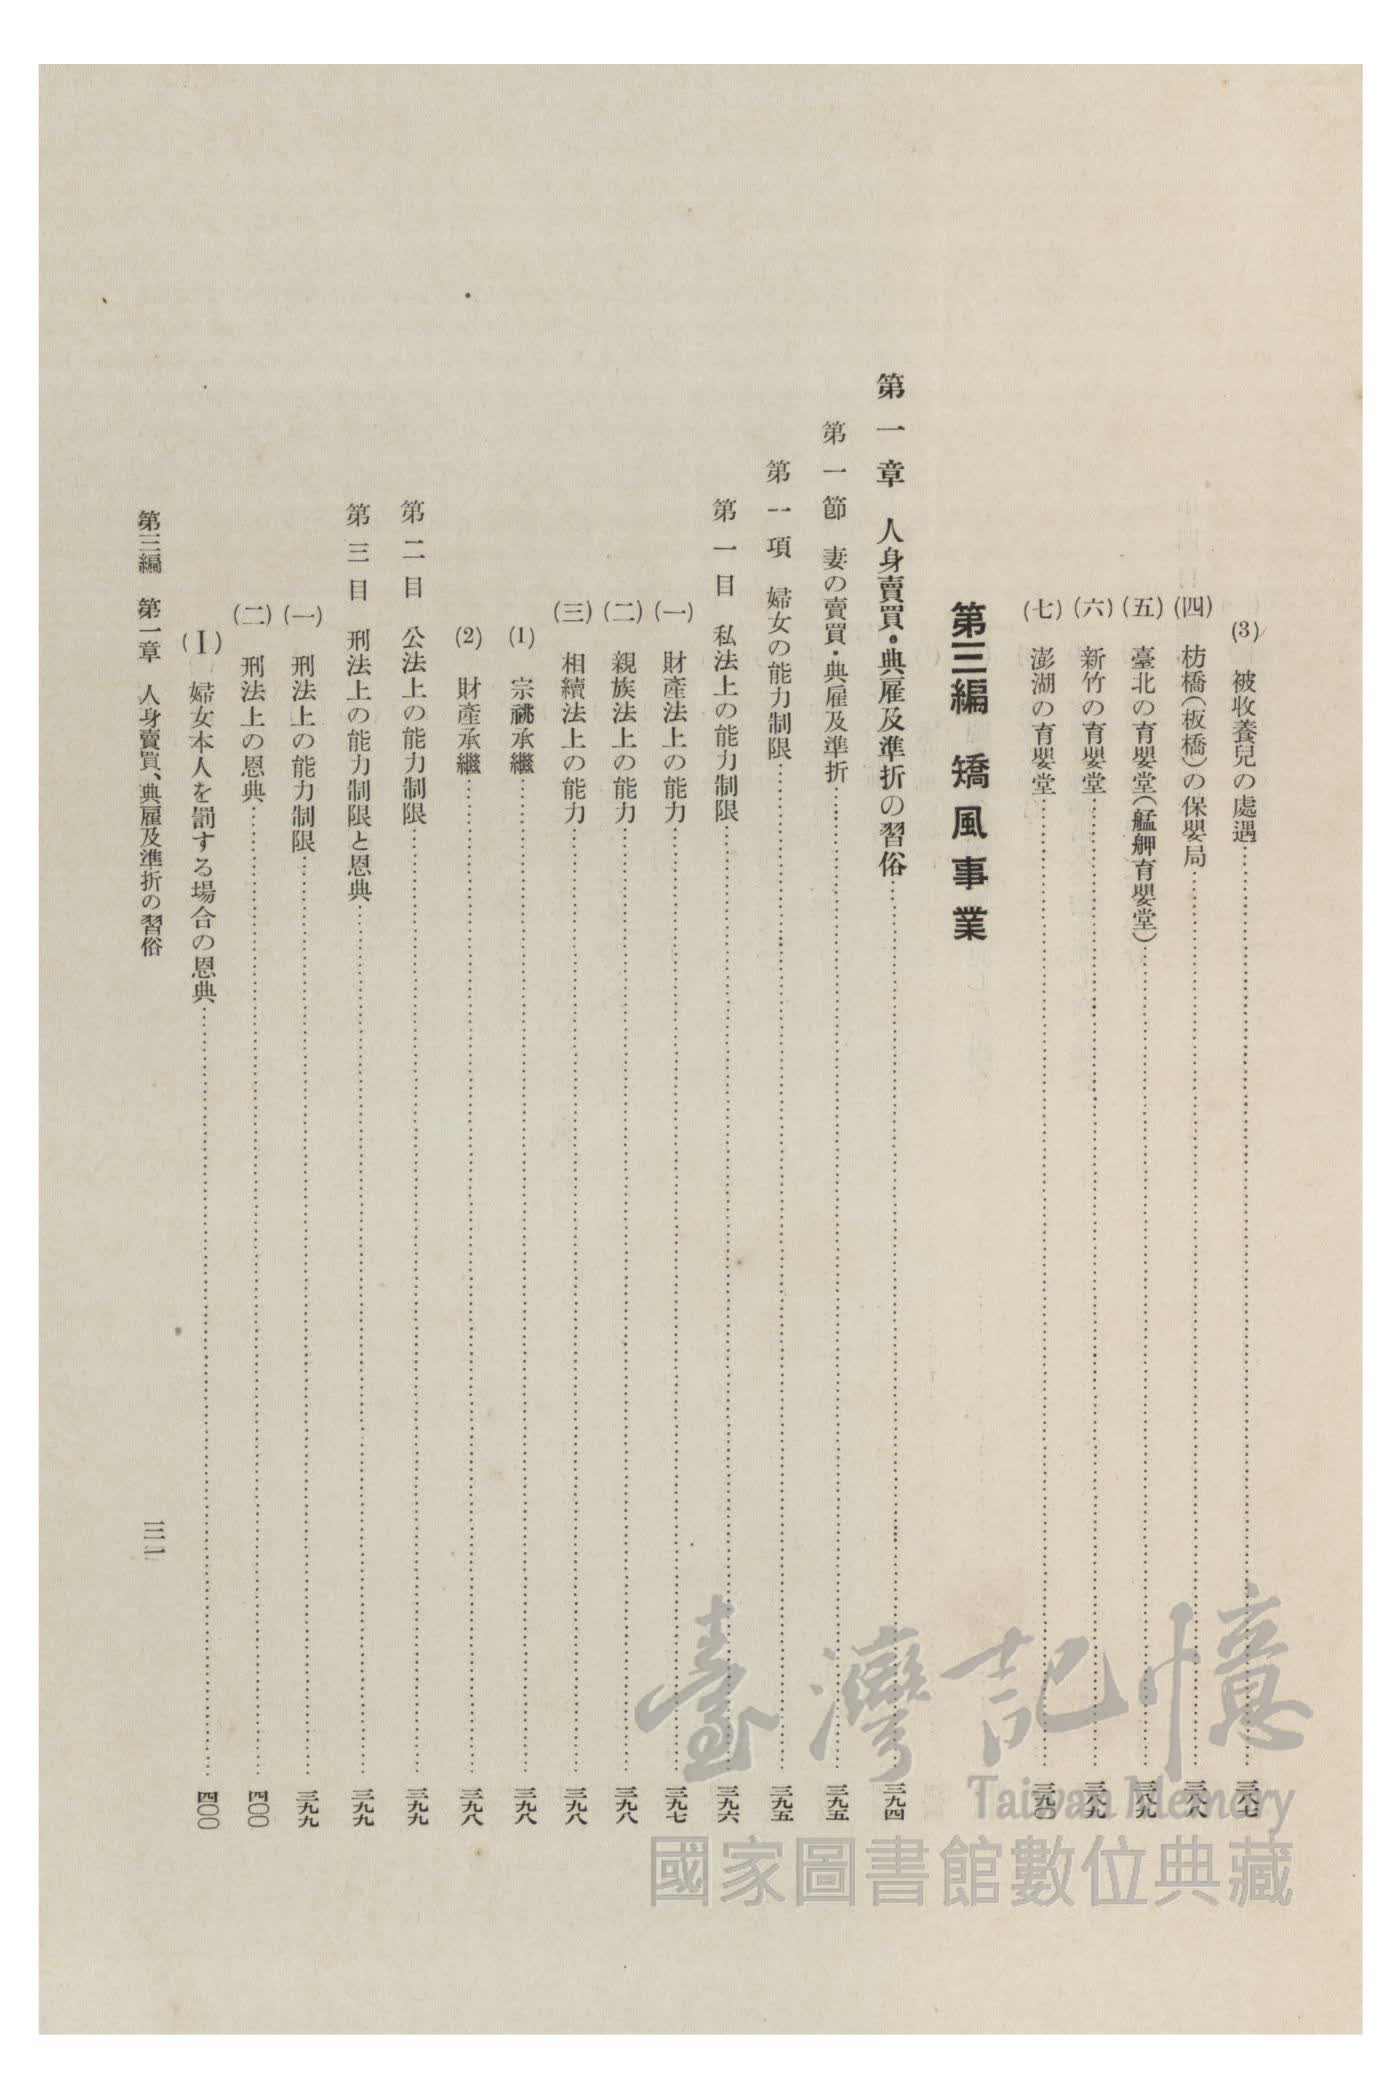 (3) 被收養兒の處遇……三八七
(四) 枋橋(板橋)の保嬰局……三八八
(五) 臺北の育嬰堂(艋舺育嬰堂)……三八九
(六) 新竹の育嬰堂……三八九
(七) 澎湖の育嬰堂……三九〇
第三編 矯風事業
第一章 人身賣買・典雇及準折の習俗……三九四
第一節 妻の賣買・典雇及準折……三九五
第一項 婦女の能力制限……三九五
第一目 私法上の能力制限……三九六
(一) 財產法上の能力……三九七
(二) 親族法上の能力……三九八
(三) 相續法上の能力……三九八
(1) 宗祧承繼……三九八
(2) 財產承繼……三九八
第二目 公法上の能力制限……三九九
第三目 刑法上の能力制限と恩典……三九九
(一) 刑法上の能力制限……三九九
(二) 刑法上の恩典……四〇〇
(I) 婦女本人を罰する場合の恩典……四〇〇
第三編 第一章 人身賣買、典雇及準折の習俗
三一
臺灣記憶
Taiwan Memory
國家圖書館數位典藏